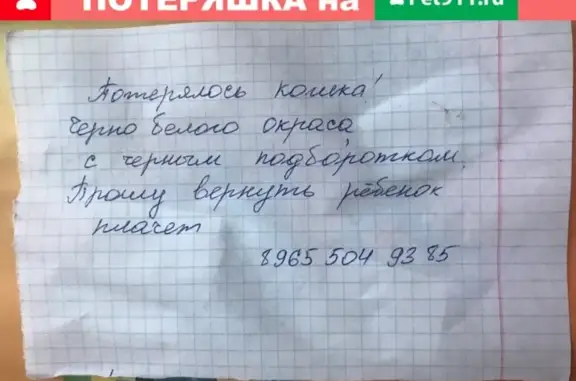 ПОТЕРЯШКА на Pet911.ru
Потерялось кошка!
Черно белого окраса
с черным подборотком.
Прошу вернуть ребёнок
плачет
8965 504 93 85